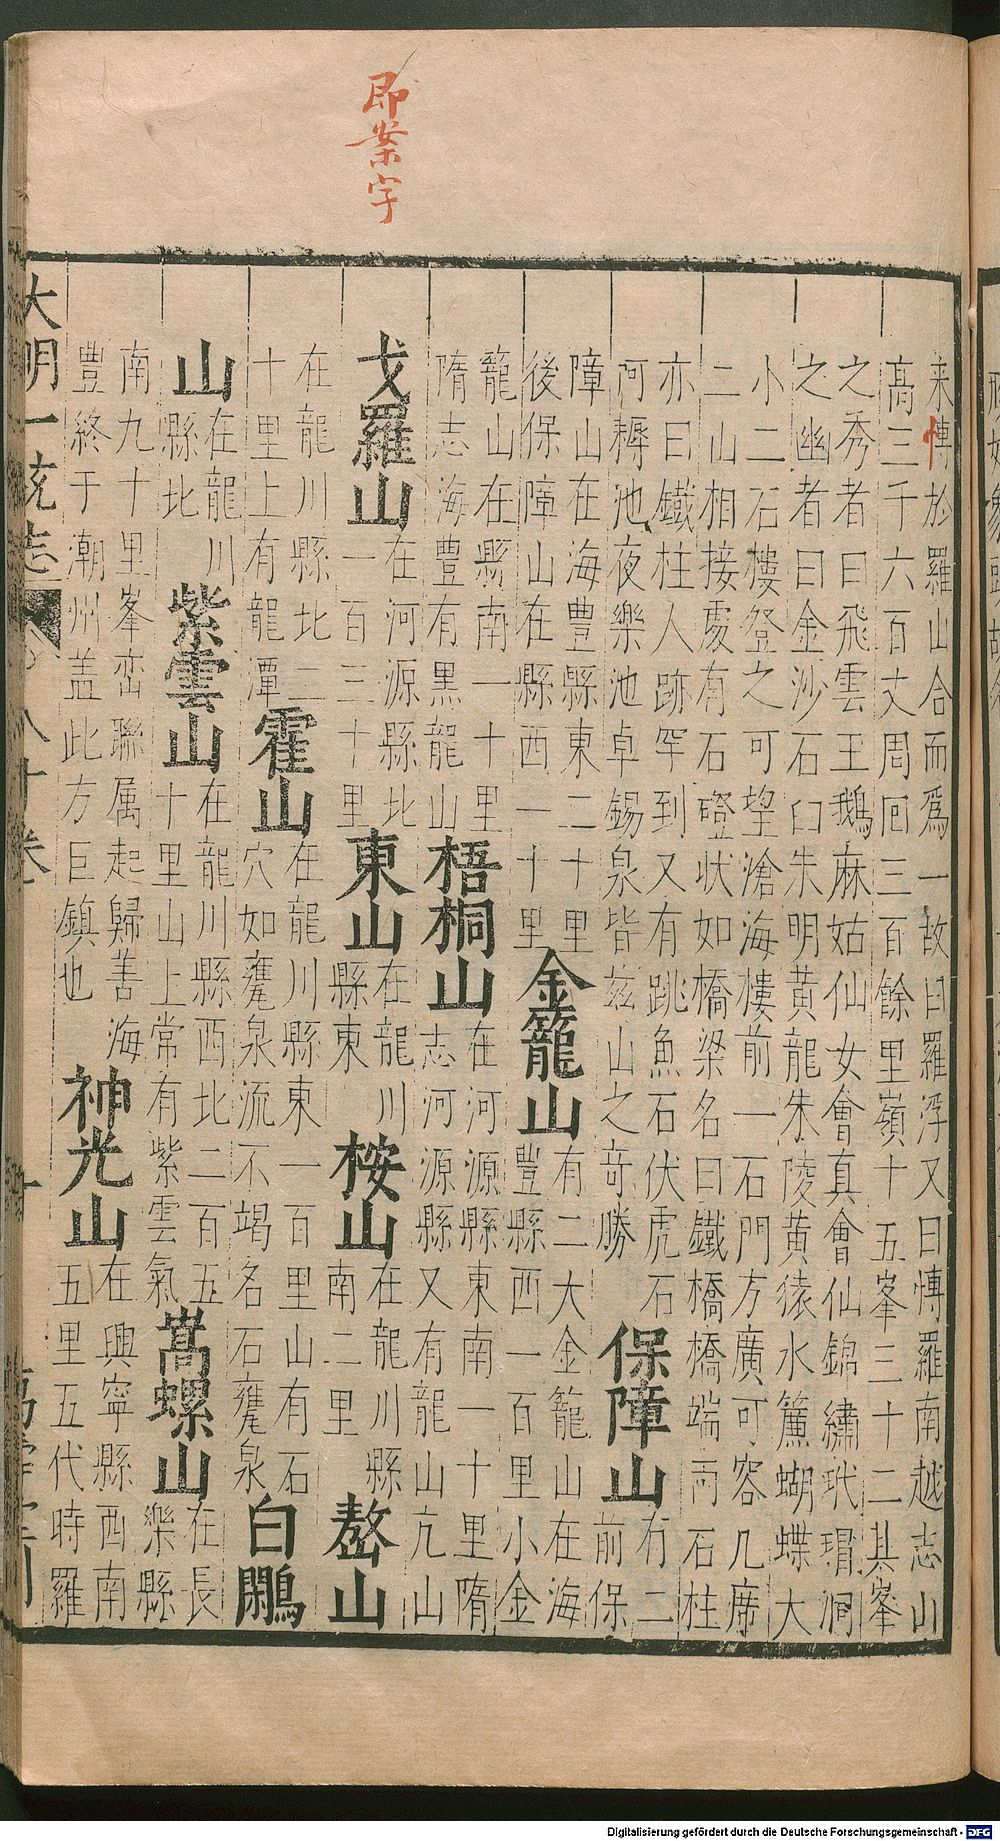 即案字
来愽於羅山合而爲一故曰羅浮又曰愽羅南越志山
高三千六百丈周囘三百餘里嶺十五峯三十二其峯
之秀者曰飛雲玉鵝麻姑仙女會真會仙錦繡玳瑁洞
之幽者曰金沙石臼朱明黄龍朱陵黄猿水簾蝴蝶大
小二石樓登之可望滄海樓前一石門方廣可容几席
二山相接處有石磴状如橋梁名曰鐵橋橋端兩石柱
亦曰鐵柱人跡罕到又有跳魚石伏虎石
阿耨池夜樂池卓錫泉皆兹山之竒勝
保障山
有二
前保
障山在海豐縣東二十里
後保障山在縣西一十里
金籠山
有二大金籠山在海
豐縣西一百里小金
籠山在縣南一十里
隋志海豐有黒龍山
梧桐山
在河源縣東南一十里隋
志河源縣又有龍山亢山
戈羅山
在河源縣北
一百三十里
東山
在龍川
縣東
桉山
在龍川縣
南二里
嶅山
在龍川縣北二
十里上有龍潭
霍山
在龍川縣東一百里山有石
穴如甕泉流不竭名石甕泉
白鷴
山
在龍川
縣北
紫雲山
在龍川縣西北二百五
十里山上常有紫雲氣
嵩螺山
在長
樂縣
南九十里峯峦聯属起歸善海
豐終于潮州盖此方巨鎮也
神光山
在興寧縣西南
五里五代時羅
大明一統志
八十卷
Digitalisierung gefördert durch die Deutsche Forschungsgemeinschaft - DFG